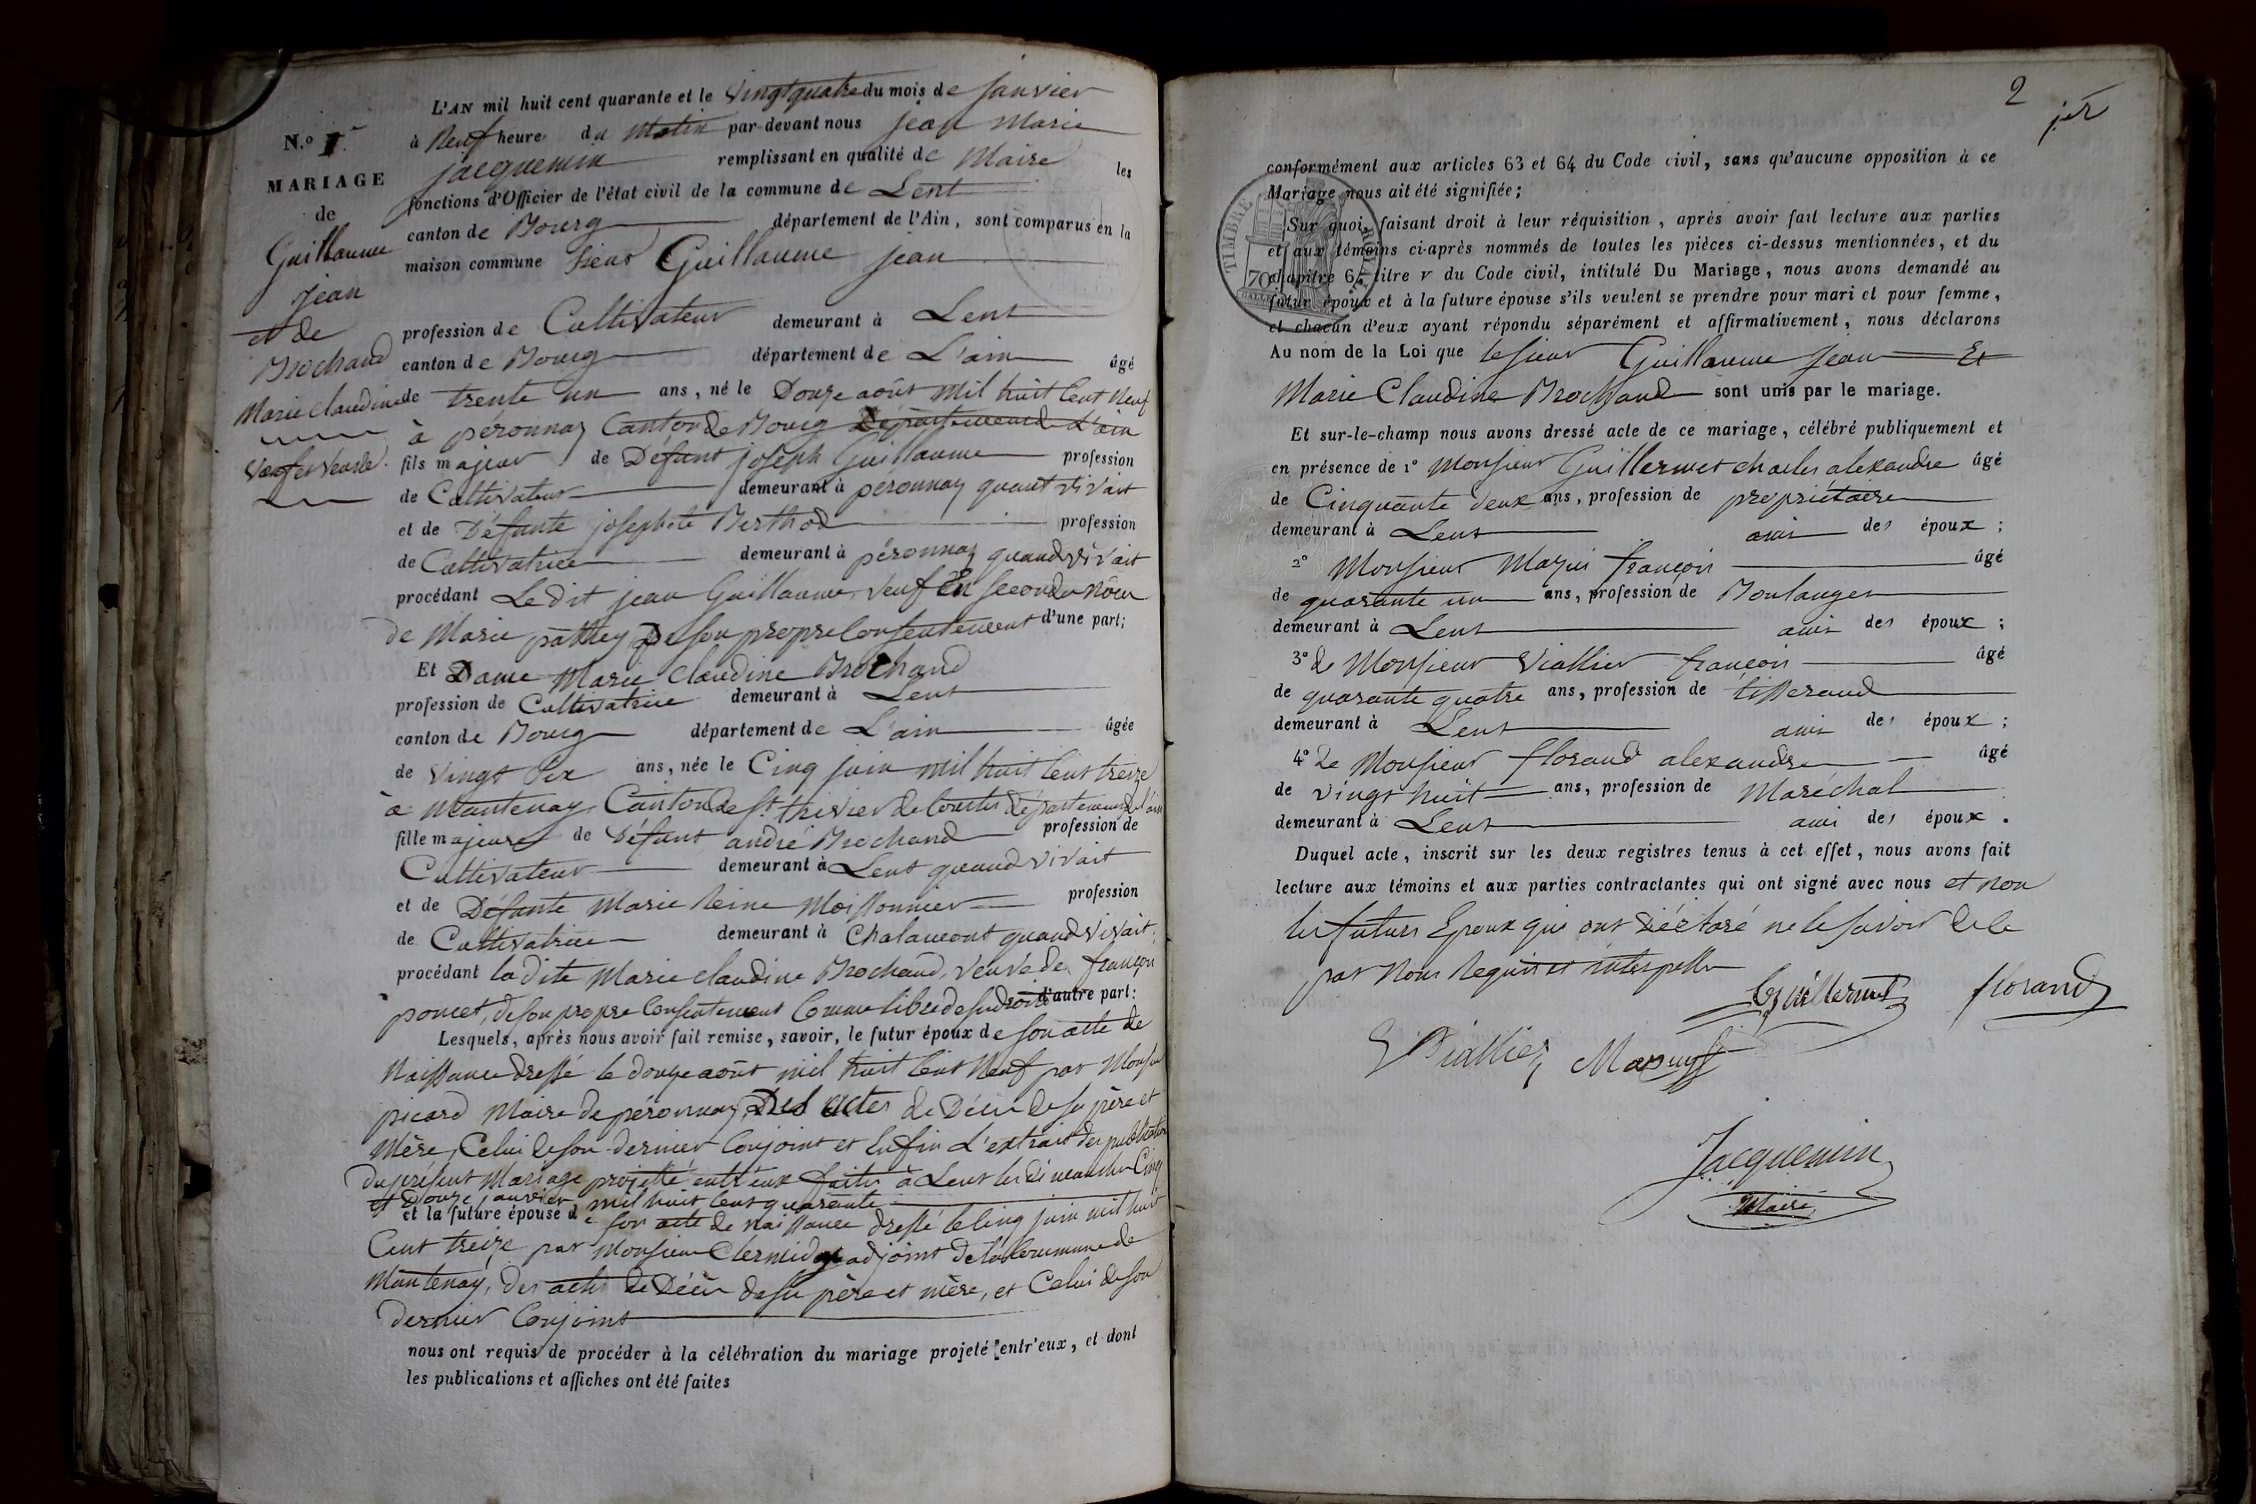 L'AN mil huit cent quarante et le vingtquatre du mois de janvier
à Neuf heure du matin par-devant nous jean Marie
jacquemin remplissant en qualité de Maire les
fonctions d'Officier de l'état civil de la commune de Lent
canton de Bourg département de l'Ain, sont comparus en la
maison commune sieur Guillaume jean
profession de Cultivateur demeurant à Lent
canton de Bourg département de L'ain âgé
de trente un ans, né le Douze août mil huit cent neuf
à péronnas Canton de Bourg Département de L'ain
fils majeur de Défunt joseph Guillaume profession
de Cultivateur demeurant à péronnas quant vivait
et de Défunte josephete Berthod profession
de Cultivatrice demeurant à péronnas quand vivait
procédant Le dit jean Guillaume, veuf En seconde nôce
de Marie pâthey De son propre Consentement d'une part;
Et Dame Marie Claudine Brochand
profession de Cultivatrice demeurant à Lent
canton de Bourg département de L'ain âgée
de vingt six ans, née le Cinq juin mil huit cent treize
à mantenay Canton de St. trivier de Courtes Département de l'ain
fille majeure de Défunt andré Brochand profession de
Cultivateur demeurant à Lent quand vivait
et de Défunte Marie Reine Moissonnier profession
de Cultivatrice demeurant à Chalamont quand vivait,
procédant la dite Marie Claudine Brochand, veuve de françois
poncet, de son propre Consentement Comme libre de ses droits d'autre part:
Lesquels, après nous avoir fait remise, savoir, le futur époux de son acte de
Naissance dressé le douze août mil huit Cent Neuf par Monsieur
picard Maire de péronnas, Des actes de Décès de ses père et
mère, Celui de son dernier Conjoint et Enfin L'extrait des publications
du présent Mariage projetté entr'eux faites à Lent les dimanches Cinq
et Douze janvier mil huit Cent quarante
et la future épouse de son acte de naissance dressé le Cinq juin mil huit
Cent treize par Monsieur Clermidy adjoint de la Commune de
Mantenay, Des actes de Décès de ses père et mère, et Celui de son
dernier Conjoint
nous ont requis de procéder à la célébration du mariage projeté entr'eux, et dont
les publications et affiches ont été faites
N.o 1er
MARIAGE
de
Guillaume
Jean
et de
Brochand
Marie Claudine
Veuf et Veuve.
2
conformément aux articles 63 et 64 du Code civil, sans qu'aucune opposition à ce
Mariage nous ait été signifiée;
Sur quoi, faisant droit à leur réquisition, après avoir fait lecture aux parties
et aux témoins ci-après nommés de toutes les pièces ci-dessus mentionnées, et du
chapitre 6, titre v du Code civil, intitulé Du Mariage, nous avons demandé au
futur époux et à la future épouse s'ils veulent se prendre pour mari et pour femme,
et chacun d'eux ayant répondu séparément et affirmativement, nous déclarons
Au nom de la Loi que le sieur Guillaume Jean Et
Marie Claudine Brochand sont unis par le mariage.
Et sur-le-champ nous avons dressé acte de ce mariage, célébré publiquement et
en présence de 1o Monsieur Guillermet charles alexandre âgé
de Cinquante deux ans, profession de propriétaire
demeurant à Lent ami des époux;
2o Monsieur Mazui françois âgé
de quarante un ans, profession de Boulanger
demeurant à Lent ami des époux;
3o de Monsieur Viallier françois âgé
de quarante quatre ans, profession de tisserand
demeurant à Lent ami des époux;
4o de Monsieur florand alexandre âgé
de vingt huit ans, profession de Maréchal
demeurant à Lent ami des époux.
Duquel acte, inscrit sur les deux registres tenus à cet effet, nous avons fait
lecture aux témoins et aux parties contractantes qui ont signé avec nous et non
les futurs Epoux qui ont déclaré ne le savoir de ce
par Nous Requis et interpellés
Guillermet florand
Viallier Mazuy
Jacquemin
Maire
TIMBRE ROYAL
70